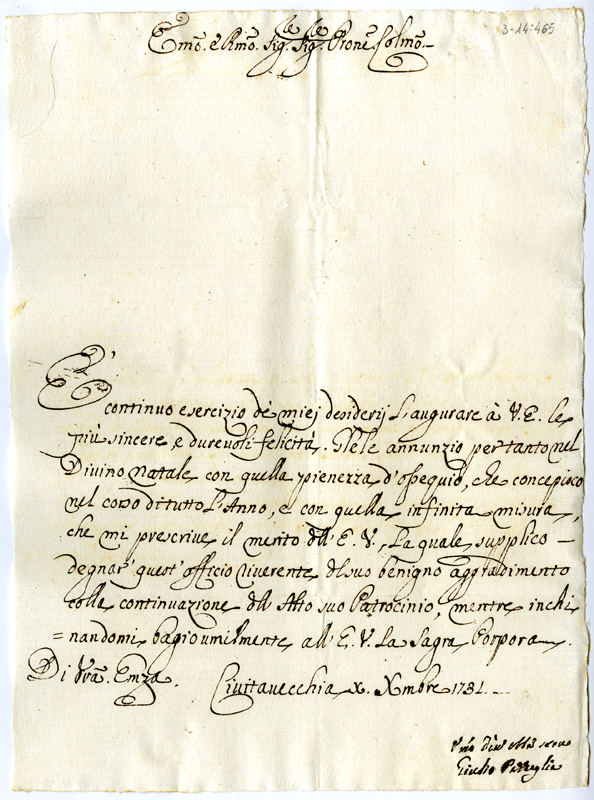 3-14:465
Emõ. e Rmõ. Sig.re Sig.re Prone Colmõ.
E' continuo esercizio de' miej desiderij l'augurare à V. E. le
più sincere, e durevoli felicità. Gliele annunzio pertanto nel
Divino Natale con quella pienezza d'ossequio, che concepisco
nel corso di tutto l'Anno, e con quella infinita misura,
che mi prescrive il merito dell' E. V., La quale supplico
degnar' quest' officio riverente del suo benigno aggradimento
colla continuazione dell' Alto suo Patrocinio, mentre inchi
=nandomi bagio umilmente all' E. V. La Sagra Porpora.
Di Vrã. Emza. Civitavecchia X. Xmbre 1731.
servo
Giulio